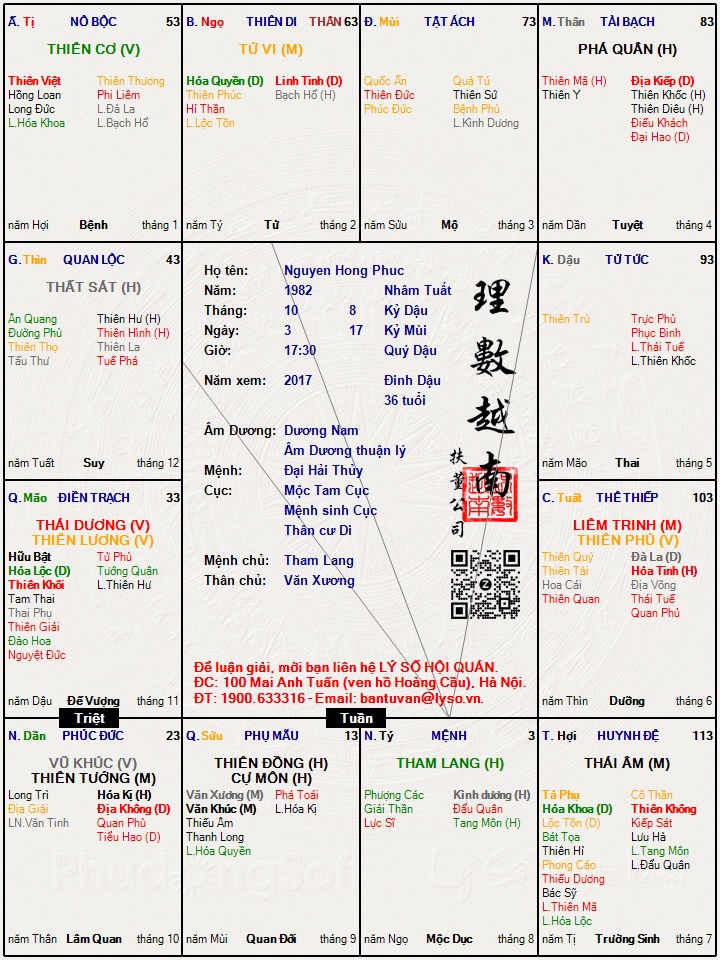 Ấ. Tị NÔ BỘC 53
THIÊN CƠ (V)
Thiên Việt
Hồng Loan
Long Đức
L.Hóa Khoa
Thiên Thương
Phi Liêm
L.Đà La
L.Bạch Hổ
năm Hợi Bệnh tháng 1
B. Ngọ THIÊN DI THÂN 63
TỬ VI (M)
Hóa Quyền (D)
Thiên Phúc
Hỉ Thần
L.Lộc Tồn
Linh Tinh (D)
Bạch Hổ (H)
năm Tý Tử tháng 2
Đ. Mùi TẬT ÁCH 73
Quốc Ấn
Thiên Đức
Phúc Đức
Quả Tú
Thiên Sứ
Bệnh Phù
L.Kình Dương
năm Sửu Mộ tháng 3
M. Thân TÀI BẠCH 83
PHÁ QUÂN (H)
Thiên Mã (H)
Thiên Y
Địa Kiếp (D)
Thiên Khốc (H)
Thiên Diêu (H)
Điếu Khách
Đại Hao (D)
năm Dần Tuyệt tháng 4
G. Thìn QUAN LỘC 43
THẤT SÁT (H)
Ân Quang
Đường Phù
Thiên Thọ
Tấu Thư
Thiên Hư (H)
Thiên Hình (H)
Thiên La
Tuế Phá
năm Tuất Suy tháng 12
Họ tên: Nguyen Hong Phuc
Năm: 1982 Nhâm Tuất
Tháng: 10 8 Kỷ Dậu
Ngày: 3 17 Kỷ Mùi
Giờ: 17:30 Quý Dậu
Năm xem: 2017 Đinh Dậu
36 tuổi
Âm Dương: Dương Nam
Âm Dương thuận lý
Mệnh: Đại Hải Thủy
Cục: Mộc Tam Cục
Mệnh sinh Cục
Thân cư Di
Mệnh chủ: Tham Lang
Thân chủ: Văn Xương
理數越南
扶董公司
Để luận giải, mời bạn liên hệ LÝ SỐ HỘI QUÁN.
ĐC: 100 Mai Anh Tuấn (ven hồ Hoàng Cầu), Hà Nội.
ĐT: 1900.633316 - Email: bantuvan@lyso.vn.
K. Dậu TỬ TỨC 93
Thiên Trù
Trực Phù
Phục Binh
L.Thái Tuế
L.Thiên Khốc
năm Mão Thai tháng 5
Q. Mão ĐIỀN TRẠCH 33
THÁI DƯƠNG (V)
THIÊN LƯƠNG (V)
Hữu Bật
Hóa Lộc (D)
Thiên Khôi
Tam Thai
Thai Phụ
Thiên Giải
Đào Hoa
Nguyệt Đức
Tử Phù
Tướng Quân
L.Thiên Hư
năm Dậu Đế Vượng tháng 11
C. Tuất THÊ THIẾP 103
LIÊM TRINH (M)
THIÊN PHỦ (V)
Thiên Quý
Thiên Tài
Hoa Cái
Thiên Quan
Đà La (D)
Hỏa Tinh (H)
Địa Võng
Thái Tuế
Quan Phủ
năm Thìn Dưỡng tháng 6
Triệt
Tuần
N. Dần PHÚC ĐỨC 23
VŨ KHÚC (V)
THIÊN TƯỚNG (M)
Long Trì
Địa Giải
LN.Văn Tinh
Hóa Kị (H)
Địa Không (D)
Quan Phù
Tiểu Hao (D)
năm Thân Lâm Quan tháng 10
Q. Sửu PHỤ MẪU 13
THIÊN ĐỒNG (H)
CỰ MÔN (H)
Văn Xương (M)
Văn Khúc (M)
Thiếu Âm
Thanh Long
L.Hóa Quyền
Phá Toái
L.Hóa Kị
năm Mùi Quan Đới tháng 9
N. Tý MỆNH 3
THAM LANG (H)
Phượng Các
Giải Thần
Lực Sĩ
Kình dương (H)
Đẩu Quân
Tang Môn (H)
năm Ngọ Mộc Dục tháng 8
T. Hợi HUYNH ĐỆ 113
THÁI ÂM (M)
Tả Phụ
Hóa Khoa (D)
Lộc Tồn (D)
Bát Tọa
Thiên Hỉ
Phong Cáo
Thiếu Dương
Bác Sỹ
L.Thiên Mã
L.Hóa Lộc
Cô Thần
Thiên Không
Kiếp Sát
Lưu Hà
L.Tang Môn
L.Đẩu Quân
năm Tị Trường Sinh tháng 7